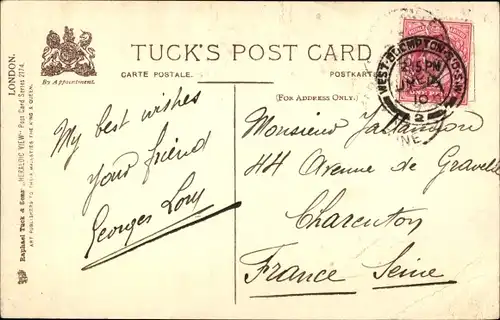 TUCK'S POST CARD
CARTE POSTALE.
POSTKARTE
(FOR ADDRESS ONLY.)
By Appointment.
LONDON.
Raphael Tuck & Sons' "HERALDIC VIEW" Post Card Series 2174.
ART PUBLISHERS TO THEIR MAJESTIES THE KING & QUEEN.
WEST BROMPTON S.O. S.W.
5 PM
10
2
My best wishes
your friend
Georges Lory
Monsieur
44 Avenue de Gravelle
Charenton
France Seine